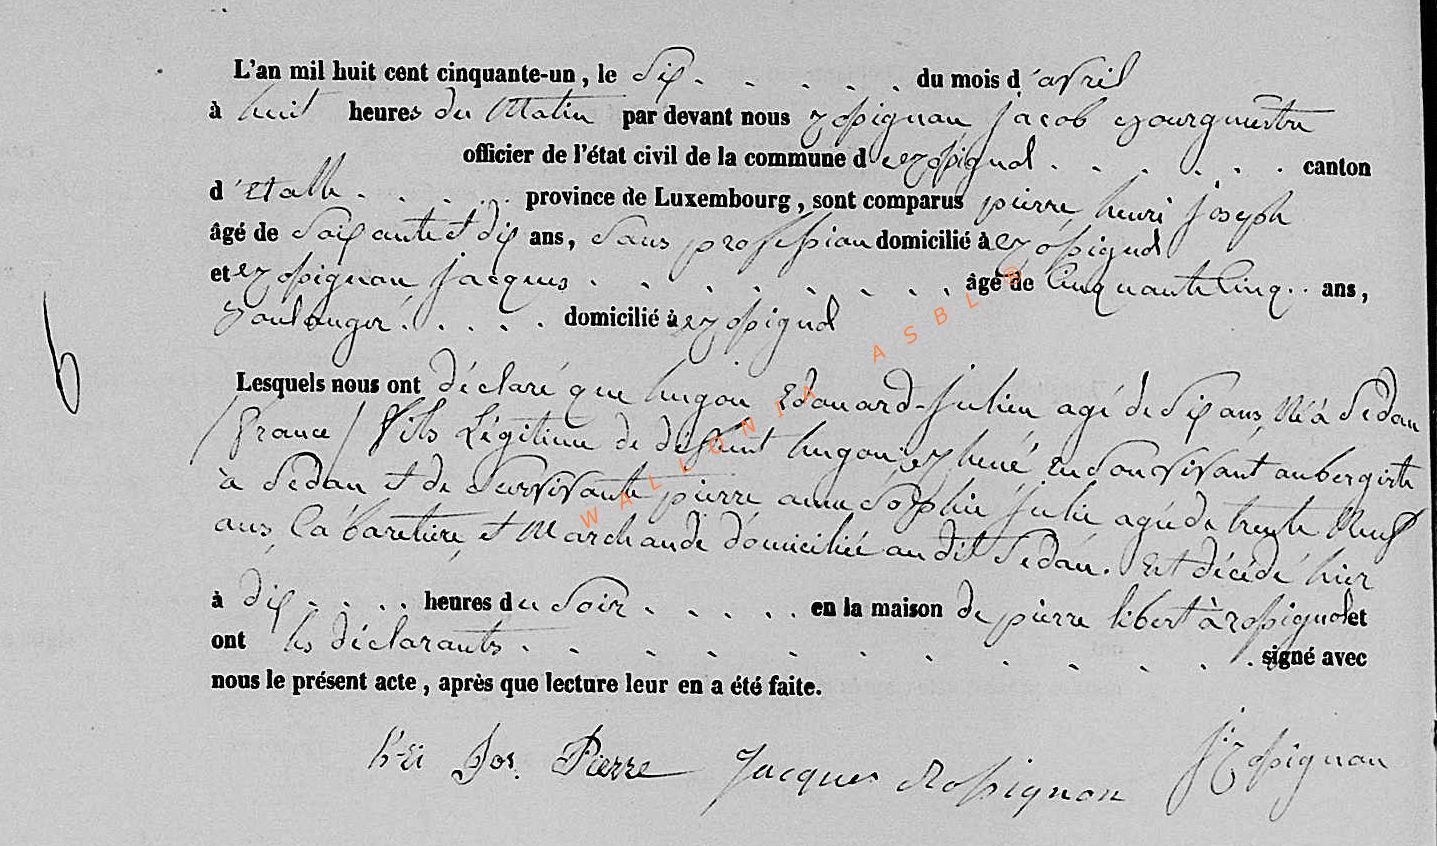 L'an mil huit cent cinquante-un, le Six . . . . . du mois d'avril
à huit heures du Matin par devant nous rossignon jacob Bourgmestre
officier de l'état civil de la commune de rossignol . . . . . . canton
d'Etalle . . . . . province de Luxembourg, sont comparus pierre henri joseph
âgé de Soixante et dix ans, Sans profession domicilié à rossignol
et rossignon jacques . . . . . . . . . âgé de Cinquante Cinq . . ans,
Boulanger . . . . . domicilié à rossignol
6
Lesquels nous ont déclaré que hugon Edouard-Julien agé de Six ans, Né à Sedan
/ france / fils Légitime de défunt hugon René En Son vivant aubergiste
à Sedan et de Survivante pierre anne Sophie Julie agée de trente Neuf
ans, Cabaretière et Marchande domiciliée au dit Sedan. Est décédé hier
à dix . . . . heures du Soir . . . . . en la maison de pierre libert à rossignol et
ont les déclarants . . . . . . . . . . signé avec
nous le présent acte, après que lecture leur en a été faite.
h-ri Jos. Pierre Jacques Rossignon J rossignon
WALLONIA ASBL ©